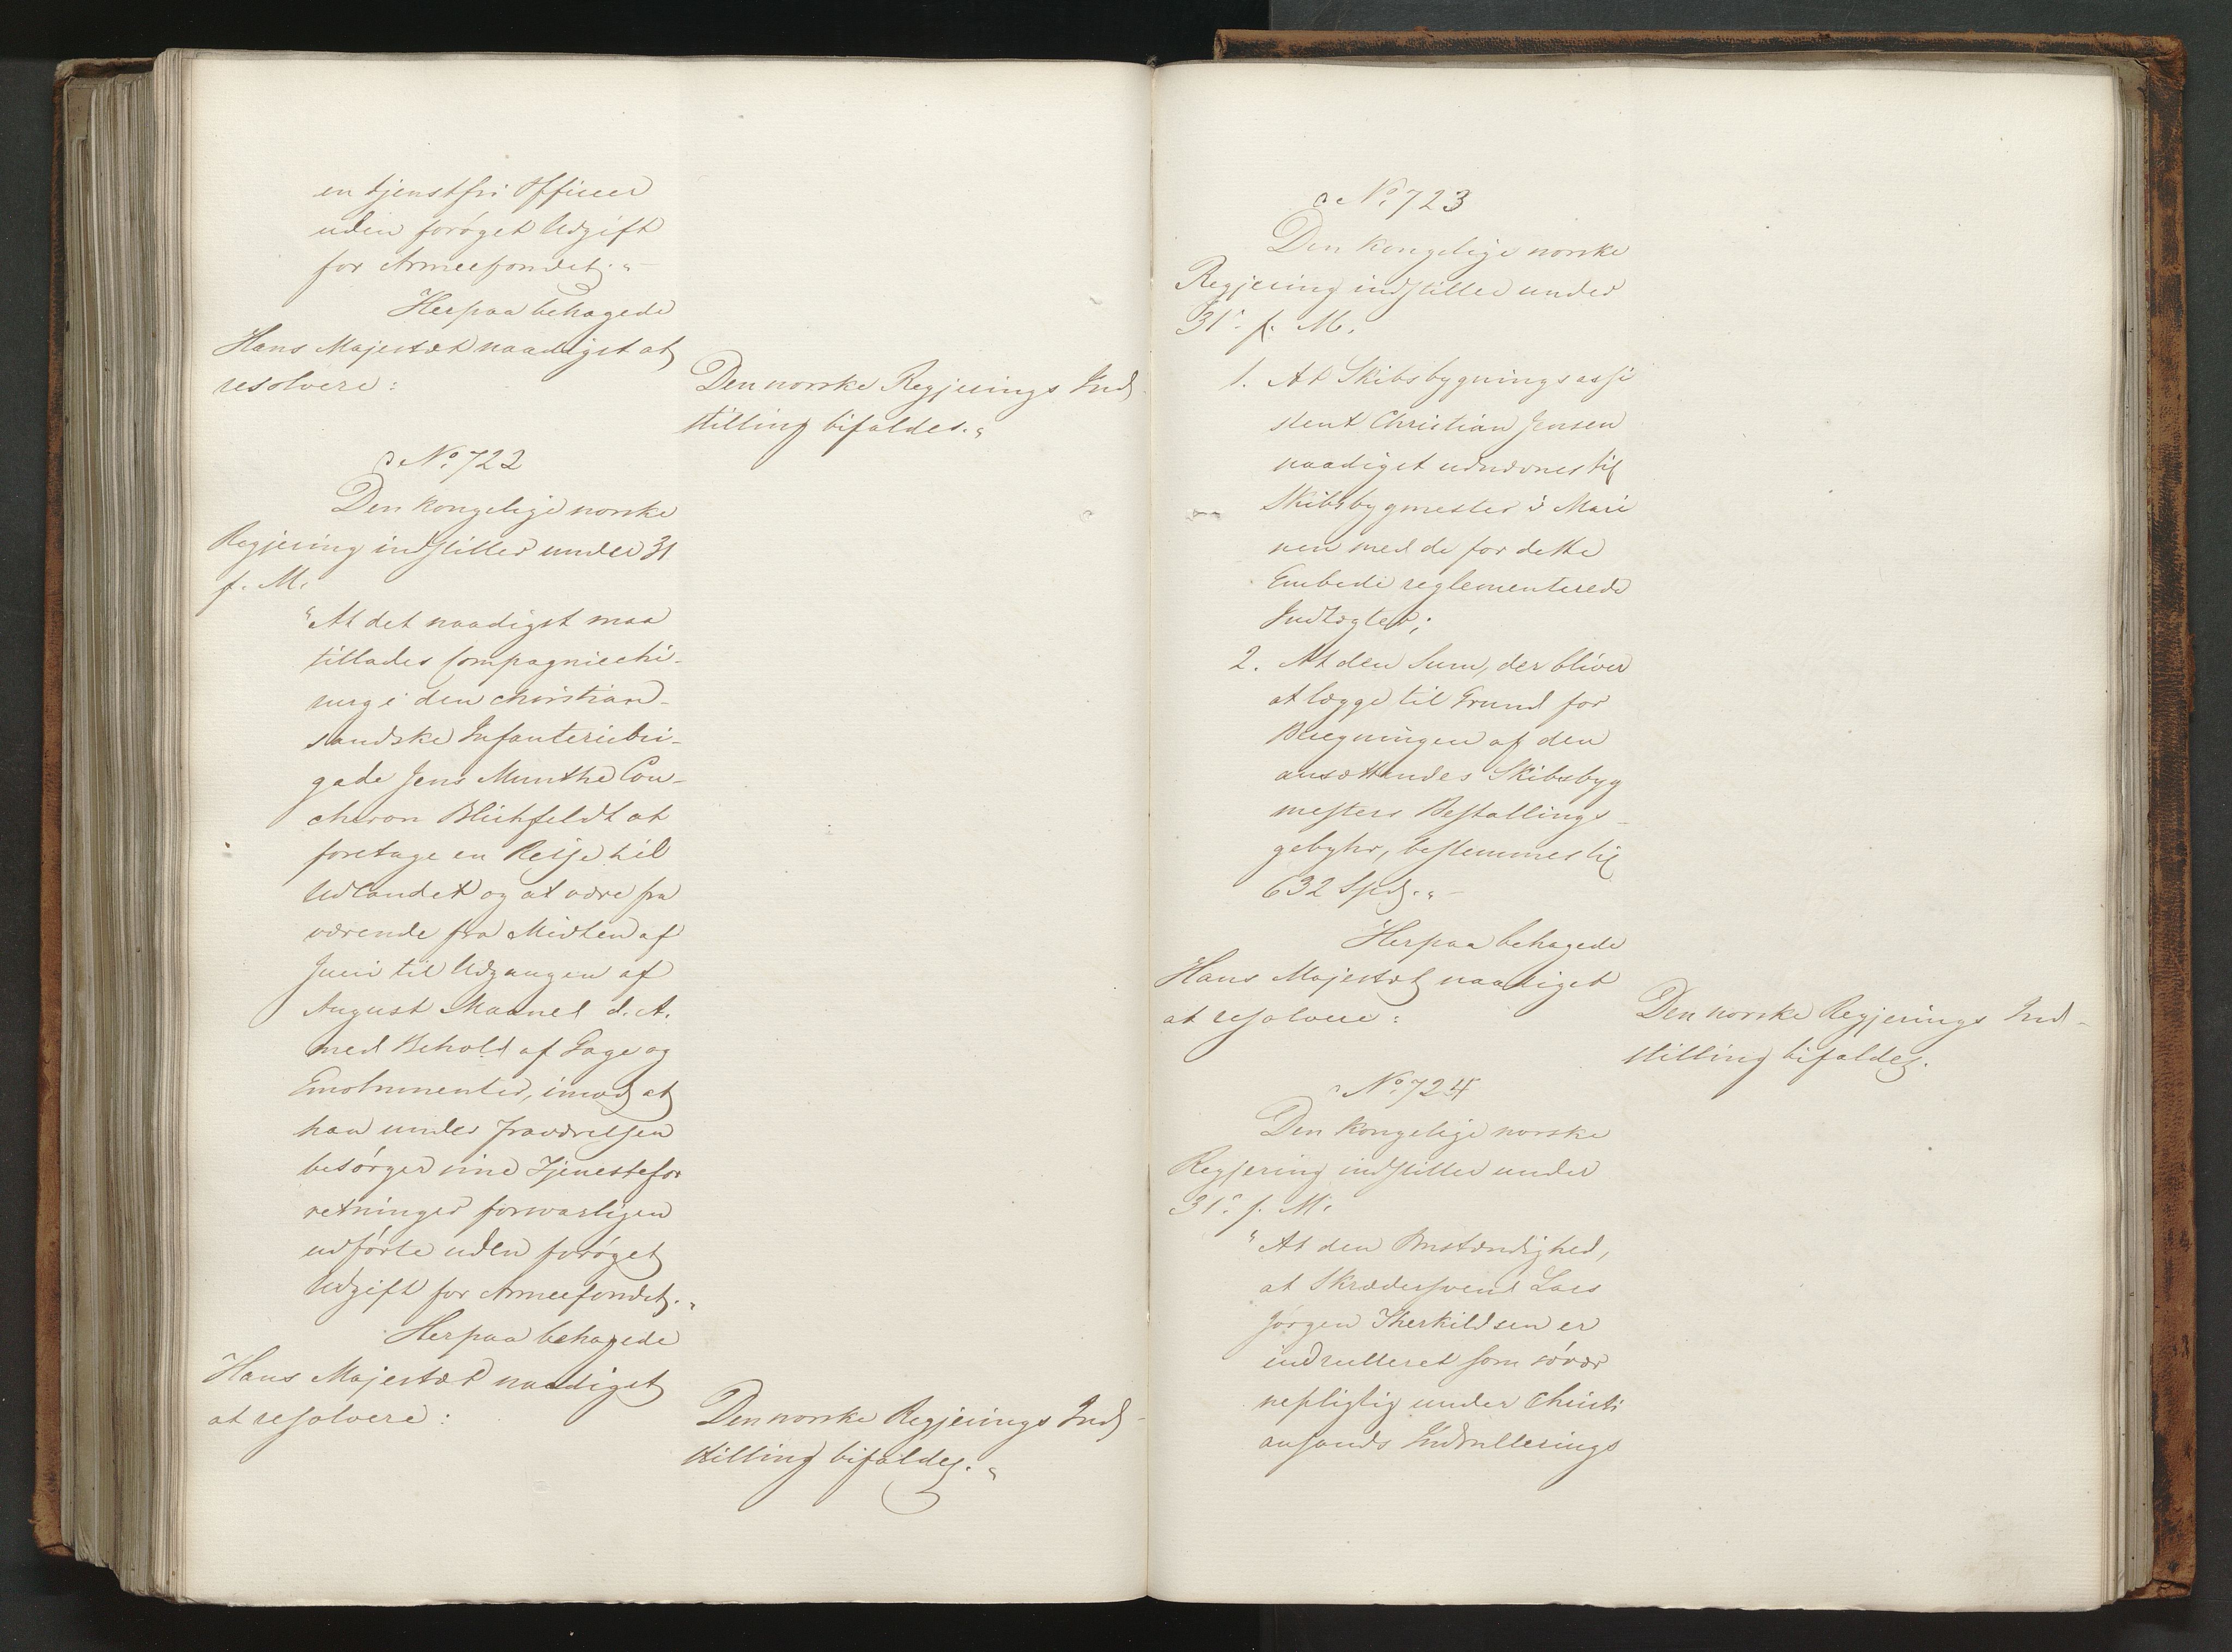 en tjenstfri Officer
uden forøget Udgift
for Armeefondet."
Herpaa behagede
Hans Majestæt naadigst at
resolvere:
Den norske Regjerings Ind-
stilling bifaldes."
No. 722
Den kongelige norske
Regjering indstiller under 31
f. M.
"At det naadigst maa
tillades Compagniechi-
rurg i den christian-
sandske Infanteribri-
gade Jens Munthe Cou-
cheron Blichfeldt at
foretage en Reise til
Udlandet og at være fra
værende fra Midten af
Juni til Udgangen af
August Maaned d. A.
med Behold af Gage og
Emolumenter, imod at
han under Fraværelsen
besørger sine Tjenestefor
retninger forsvarligen
udførte uden forøget
Udgift for Armeefondet."
Herpaa behagede
Hans Majestæt naadigst
at resolvere:
Den norske Regjerings Ind-
stilling bifaldes."
No. 723
Den Kongelige norske
Regjering indstiller under
31. f. M.
1. At Skibsbygningsassi
stent Christian Jensen
naadigst udnævnes til
Skibsbygmester i Mari
nen med de for dette
Embede reglementerede
Indtægter;
2. At den Sum, der bliver
at lægge til Grund for
Beregningen af den
ansættendes Skibsbyg
mesters Bestallings-
gebyhr, bestemmes til
632 Spd."
Herpaa behagede
Hans Majestæt naadigst
at resolvere:
Den norske Regjerings Ind-
stilling bifaldes.
No. 724
Den Kongelige norske
Regjering indstiller under
31. f. M.
"At den Omstændighed,
at Skrædersvend Lars
Jørgen Therkildsen er
indrulleret som søvær
nepligtig under Christi
ansands Indrullerings